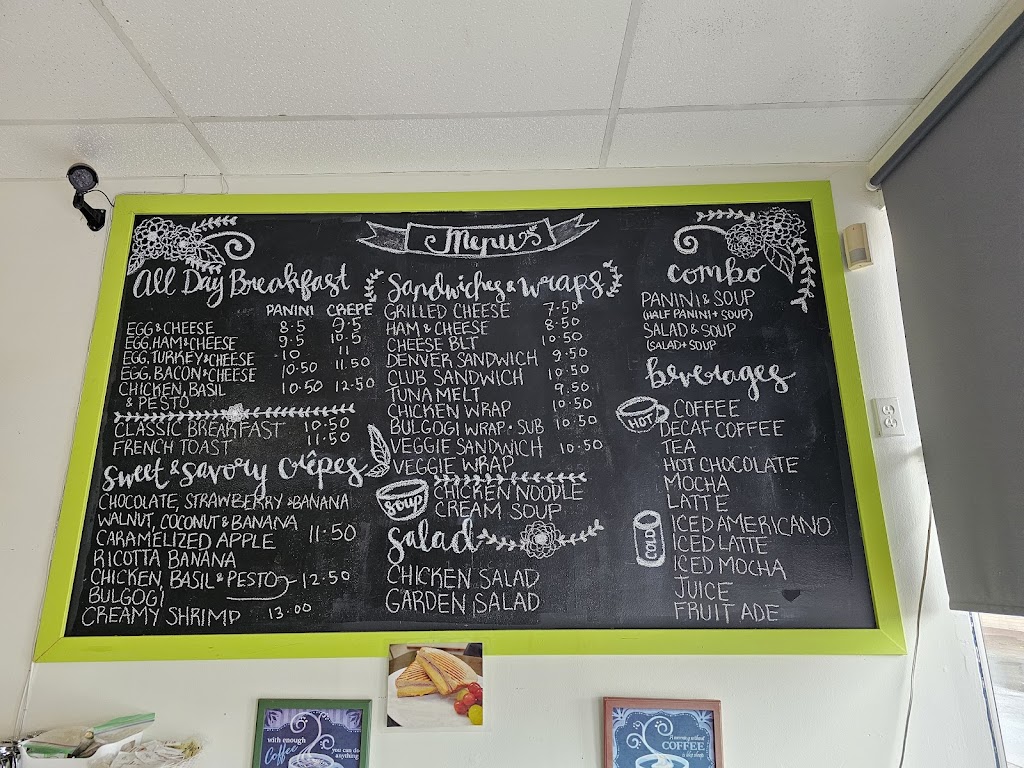 Menu
All Day Breakfast
PANINI CREPE
EGG & CHEESE 8.5 9.5
EGG, HAM & CHEESE 9.5 10.5
EGG, TURKEY & CHEESE 10 11
EGG, BACON & CHEESE 10.50 11.50
CHICKEN, BASIL & PESTO 10.50 12.50
CLASSIC BREAKFAST 10.50
FRENCH TOAST 11.50
Sweet & Savory Crêpes
CHOCOLATE, STRAWBERRY & BANANA
WALNUT, COCONUT & BANANA
CARAMELIZED APPLE 11.50
RICOTTA BANANA
CHICKEN, BASIL & PESTO 12.50
BULGOGI
CREAMY SHRIMP 13.00
Sandwiches & Wraps
GRILLED CHEESE 7.50
HAM & CHEESE 8.50
CHEESE BLT 10.50
DENVER SANDWICH 9.50
CLUB SANDWICH 10.50
TUNA MELT 9.50
CHICKEN WRAP 10.50
BULGOGI WRAP · SUB 10.50
VEGGIE SANDWICH 10.50
VEGGIE WRAP
SOUP
CHICKEN NOODLE
CREAM SOUP
Salad
CHICKEN SALAD
GARDEN SALAD
Combo
PANINI & SOUP
(HALF PANINI + SOUP)
SALAD & SOUP
(SALAD + SOUP
beverages
HOT
COFFEE
DECAF COFFEE
TEA
HOT CHOCOLATE
MOCHA
LATTE
COLD
ICED AMERICANO
ICED LATTE
ICED MOCHA
JUICE
FRUIT ADE
with enough
Coffee
you can do
anything
A morning without
COFFEE
is like sleep